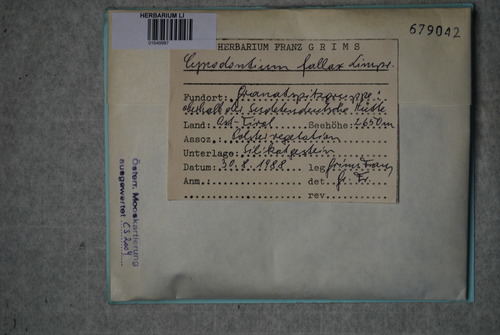 HERBARIUM LI
679042
HERBARIUM FRANZ GRIMS
Cynodontium fallax Limpr.
Fundort: Granatspitzgruppe:
oberhalb der Sudetendeutsche Hütte
Land: Ost-Tirol Seehöhe: 2650m
Assoz.: Polstervegetation
Unterlage: Silikatgestein
Datum: 30.8.1988 leg. Grims Franz
Anm.: det. Gr. Fr.
rev.
Österr. Mooskartierung
ausgewertet CS 2004